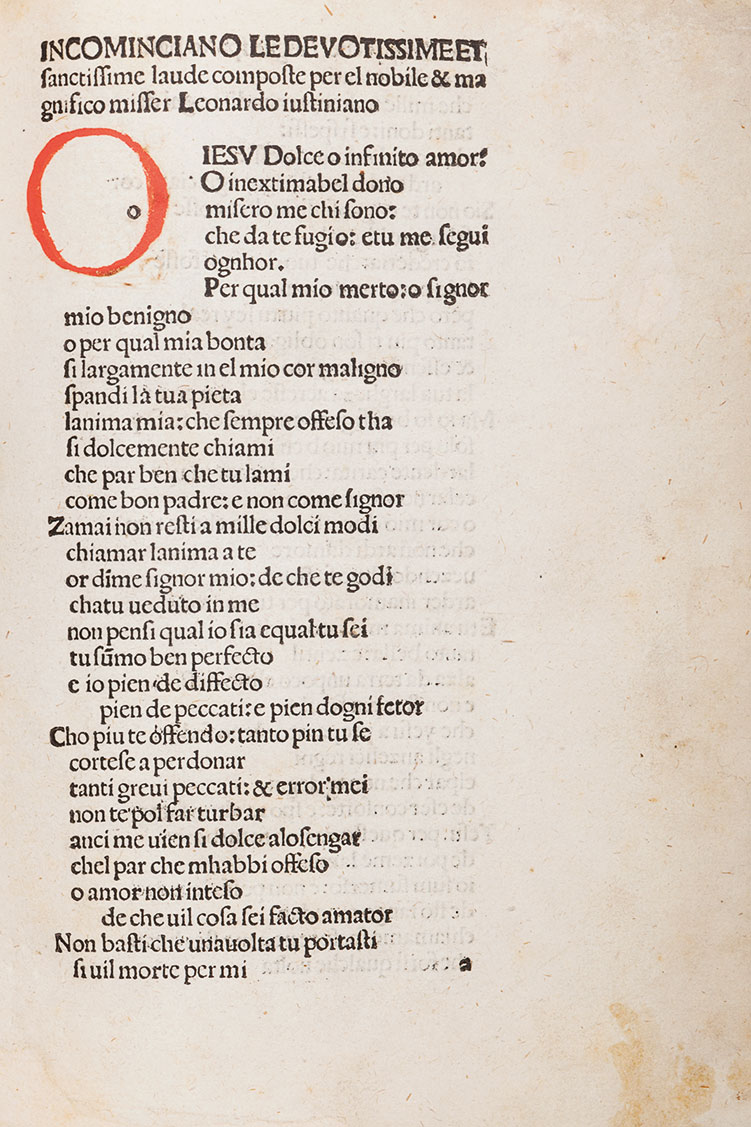 INCOMINCIANO LE DEVOTISSIME ET
ſanctiſſime laude compoſte per el nobile & ma
gnifico miſſer Leonardo iuſtiniano
O
o
IESV Dolce o infinito amor:
O inextimabel dono
miſero me chi ſono:
che da te fugio: etu me ſegui
ognhor.
Per qual mio merto: o ſignor
mio benigno
o per qual mia bonta
ſi largamente in el mio cor maligno
ſpandi la tua pieta
lanima mia: che ſempre offeſo tha
ſi dolcemente chiami
che par ben che tu lami
come bon padre: e non come ſignor
Zamai non reſti a mille dolci modi
chiamar lanima a te
or dime ſignor mio: de che te godi
chatu ueduto in me
non penſi qual io ſia equal tu ſei
tu ſūmo ben perfecto
e io pien de diffecto
pien de peccati: e pien dogni fetor
Cho piu te offendo: tanto pin tu ſe
corteſe a perdonar
tanti greui peccati: & error mei
non te pol far turbar
anci me uien ſi dolce aloſengar
chel par che mhabbi offeſo
o amor non inteſo
de che uil coſa ſei facto amator
Non baſti che una uolta tu portaſti
ſi uil morte per mi
a